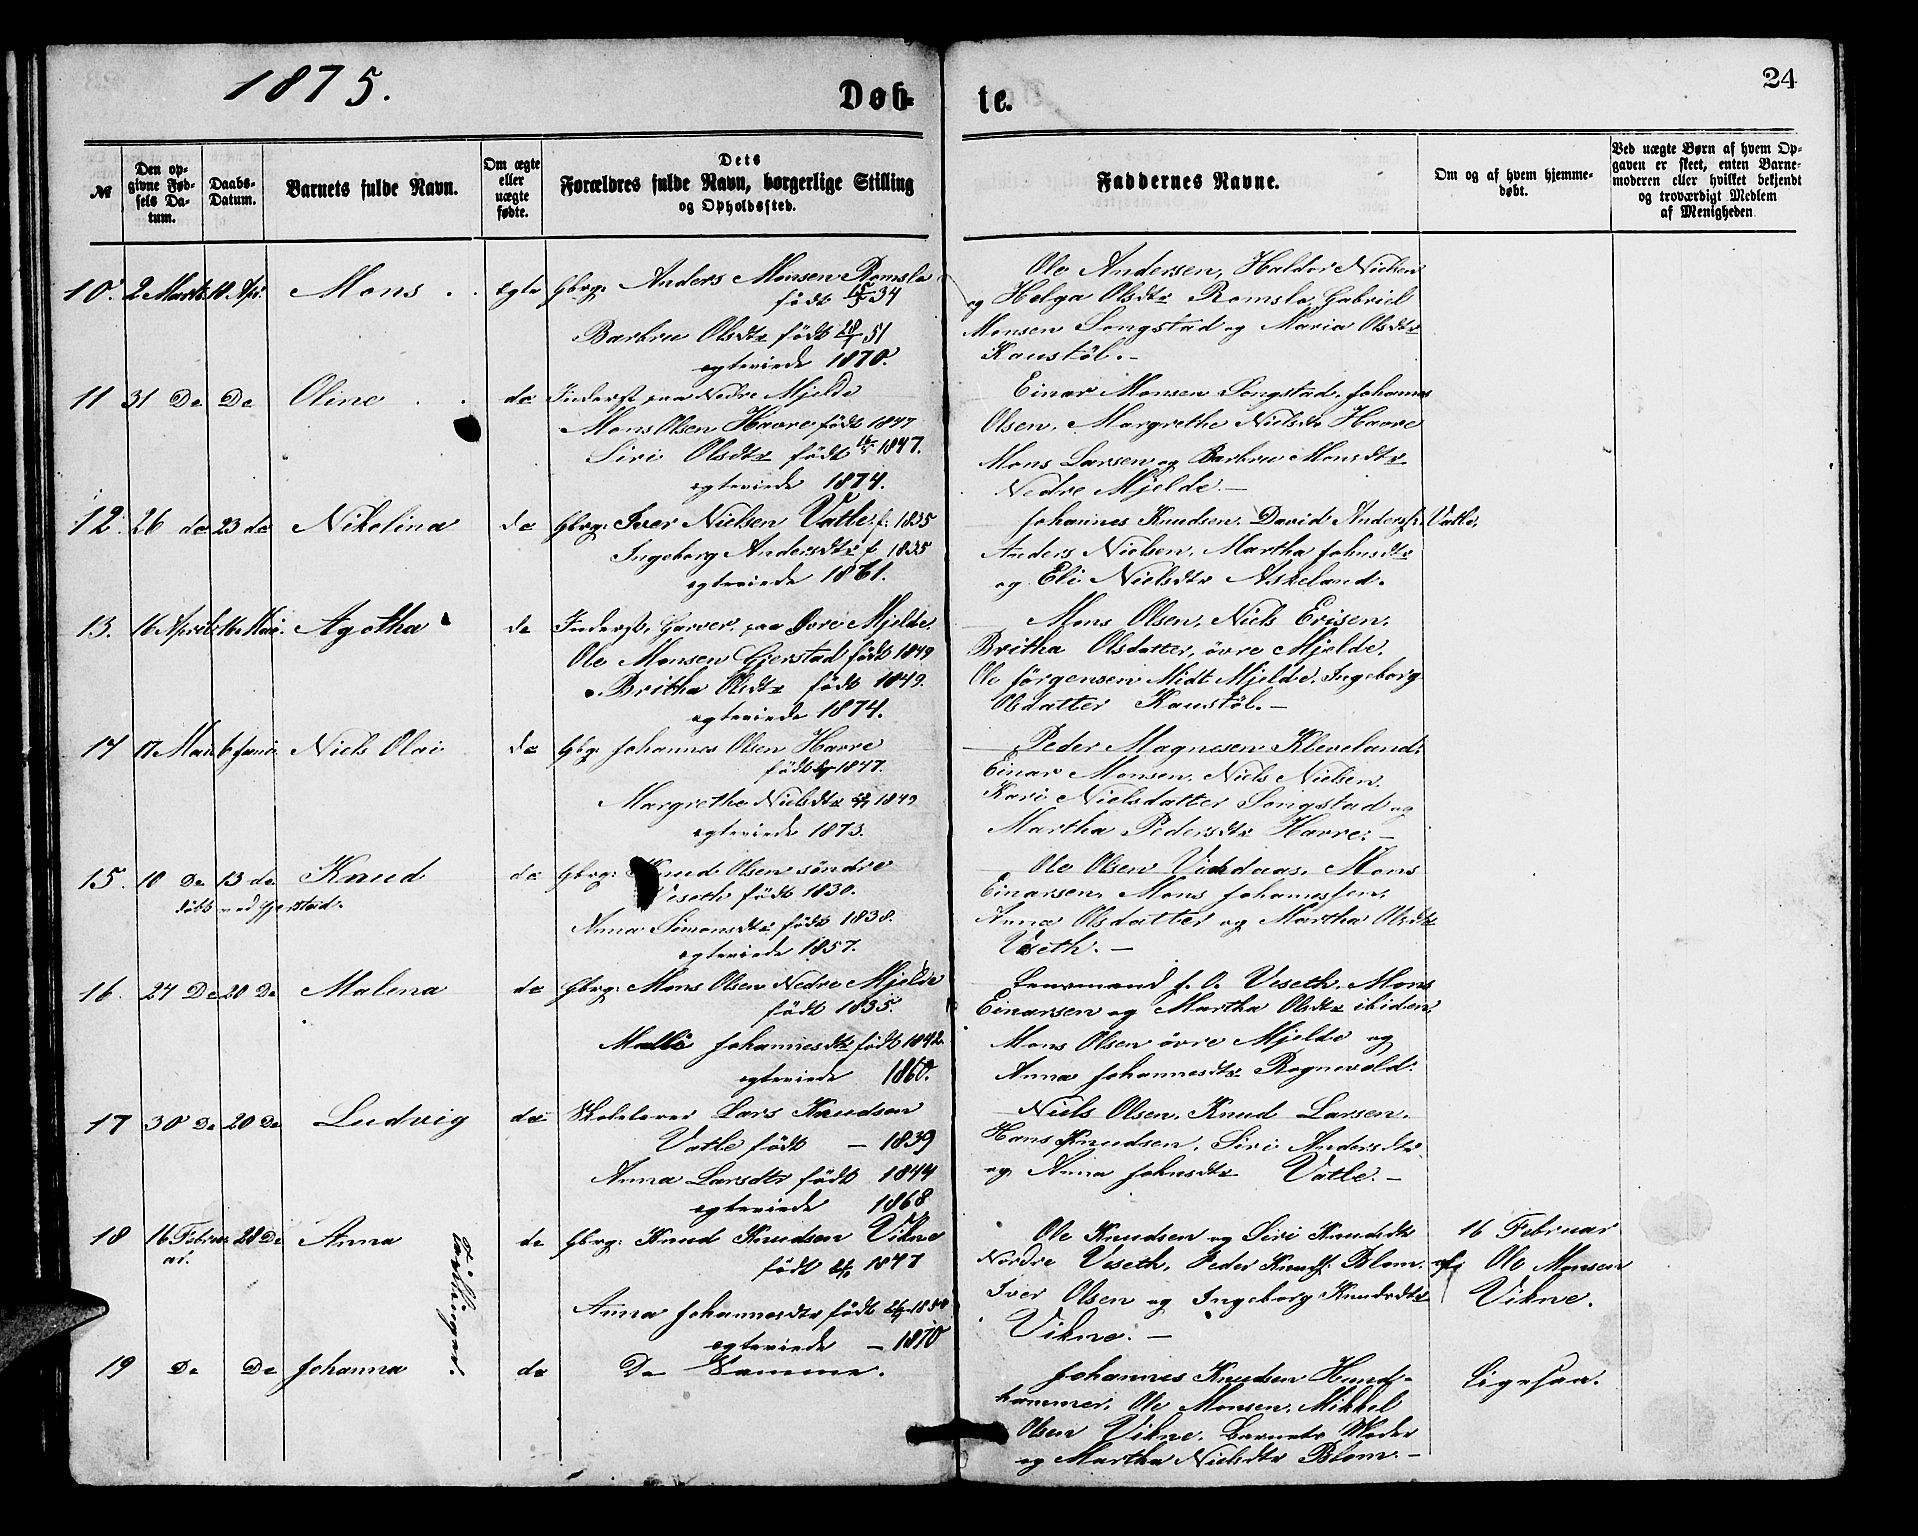 1875.
Døb-
te.
24
№
Den op-
givne Fød-
sels Da-
tum.
Daabs-
Datum.
Barnets fulde Navn.
Om ægte
eller
uægte
fødte.
Dets
Forældres fulde Navn, borgerlige Stilling
og Opholdssted.
Faddernes Navne.
Om og af hvem hjemme-
døbt.
Ved uægte Børn af hvem Op-
gaven er skeet, enten Barne-
moderen eller hvilket bekjendt
og troværdigt Medlem
af Menigheden
10. 2 Marts 10 Apr. Mons egte Gbrg: Anders Monsen Romslo
født 15/3 34
Barbru Olsdtr født 28/1 51
egteviede 1870.
Ole Andersen, Haldor Nielsen
og Helga Olsdtr Romslo, Gabriel
Monsen Songstad og Maria Olsdtr
Kaustöl.-
11 31 Do Do Oline do Inderst paa Nedre Mjelde
Mons Olsen Havre født 1847
Siri Olsdtr født 1847.
egteviede 1874.
Einar Monsen Songstad, Johannes
Olsen, Margrethe Nielsdtr Havre
Mons Larsen og Barbru Monsdtr
Nedre Mjelde.-
12. 26 do 23 do Nikolina do Gbrg: Iver Nielsen Vatle f. 1835
Ingeborg Andersdtr f. 1835
egteviede 1861.
Johannes Knudsen, David Anderss. Vatle,
Anders Nielsen, Martha Johnsdtr
og Eli Nielsdtr Askeland.
13. 16 April 16 Mai. Agotha do Inderst, Garver, paa Øvre Mjelde.
Ole Monsen Gjerstad født 1849
Britha Olsdtr født 1849.
egteviede 1874.
Mons Olsen, Niels Erisen,
Britha Olsdatter, övre Mjelde.
Ole Jörgensen Midt Mjelde, Ingeborg
Olsdatter Kaustöl.-
14 17 Mai 6 Juni. Niels Olai do Gbg: Johannes Olsen Havre
født 1847.
Margrethe Nielsdtr 1849
egteviede 1873.
Peder Magnesen Kleveland,
Einar Monsen, Niels Nielsen,
Kari Nielsdatter Songstad og
Martha Pedersdtr Havre.-
15. 10 Do 13 do Knud do Gbrg: Knud Olsen søndre
døbt ved Gjerstad.
Veseth født 1830.
Anna Simonsdtr født 1838.
egteviede 1857.
Ole Olsen Vardaas, Mons
Einarsen, Mons Johannessen,
Anna Olsdatter og Martha Olsdtr
Veseth.-
16. 24 Do 20 Do Malena do Gbrg: Mons Olsen Nedre Mjelde
født 1835.
Malli Johannesdtr født 1842
egteviede 1860.
Lensmand J. O. Veseth, Mons
Einarsen og Martha Olsdtr ibidem,
Mons Olsen övre Mjelde og
Anna Johannesdtr Rognevold.
17 30 Do 20 Do Ludvig do Skolelærer Lars Knudsen
Vatle født - 1839
Anna Larsdtr født 1844
egteviede 1868
Niels Olsen, Knud Larsen,
Hans Knudsen, Siri Andersdtr
og Anna Johnsdtr Vatle.-
18 16 Febru- 28 Do Anna do Gbrg: Knud Knudsen Vikne
ar.
født 1847
Anna Johannesdtr født 1850.
egteviede - 1870
Tvillinger.
Ole Knudsen og Siri Knudsdtr
Nordre Veseth, Peder Knuds. Blom.
Iver Olsen og Ingeborg Knudsdtr
Vikne.-
16 Februar
af Ole Monsen
Vikne.
19 Do Do Johanna do De Samme.
Johannes Knudsen Hund-
hammer, Ole Monsen, Mikkel
Olsen Vikne, Barnets Moder
og Martha Nielsdtr Blom.-
Ligesaa.